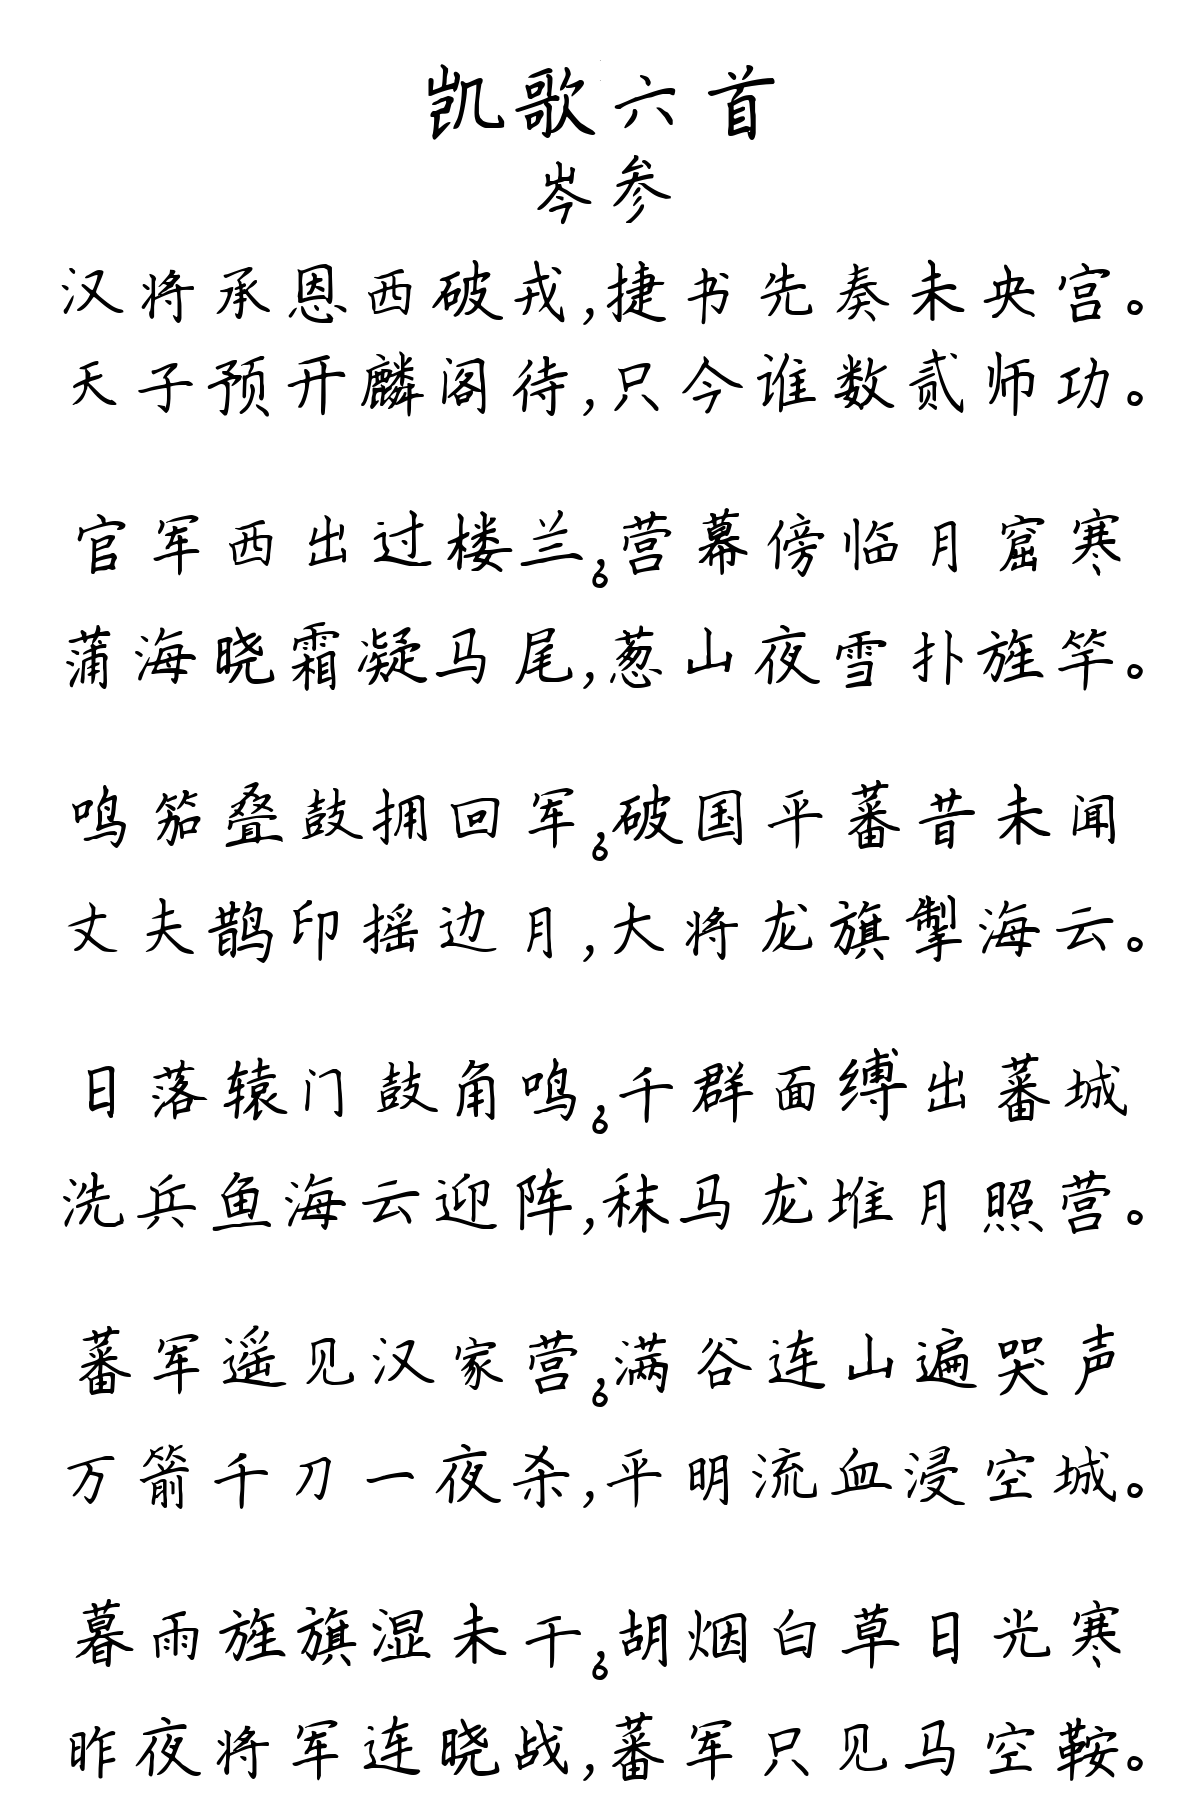 凯歌六首
岑参
汉将承恩西破戎,捷书先奏未央宫。
天子预开麟阁待,只今谁数贰师功。
官军西出过楼兰,营幕傍临月窟寒。
蒲海晓霜凝马尾,葱山夜雪扑旌竿。
鸣笳叠鼓拥回军,破国平蕃昔未闻。
丈夫鹊印摇边月,大将龙旗掣海云。
日落辕门鼓角鸣,千群面缚出蕃城。
洗兵鱼海云迎阵,秣马龙堆月照营。
蕃军遥见汉家营,满谷连山遍哭声。
万箭千刀一夜杀,平明流血浸空城。
暮雨旌旗湿未干,胡烟白草日光寒。
昨夜将军连晓战,蕃军只见马空鞍。